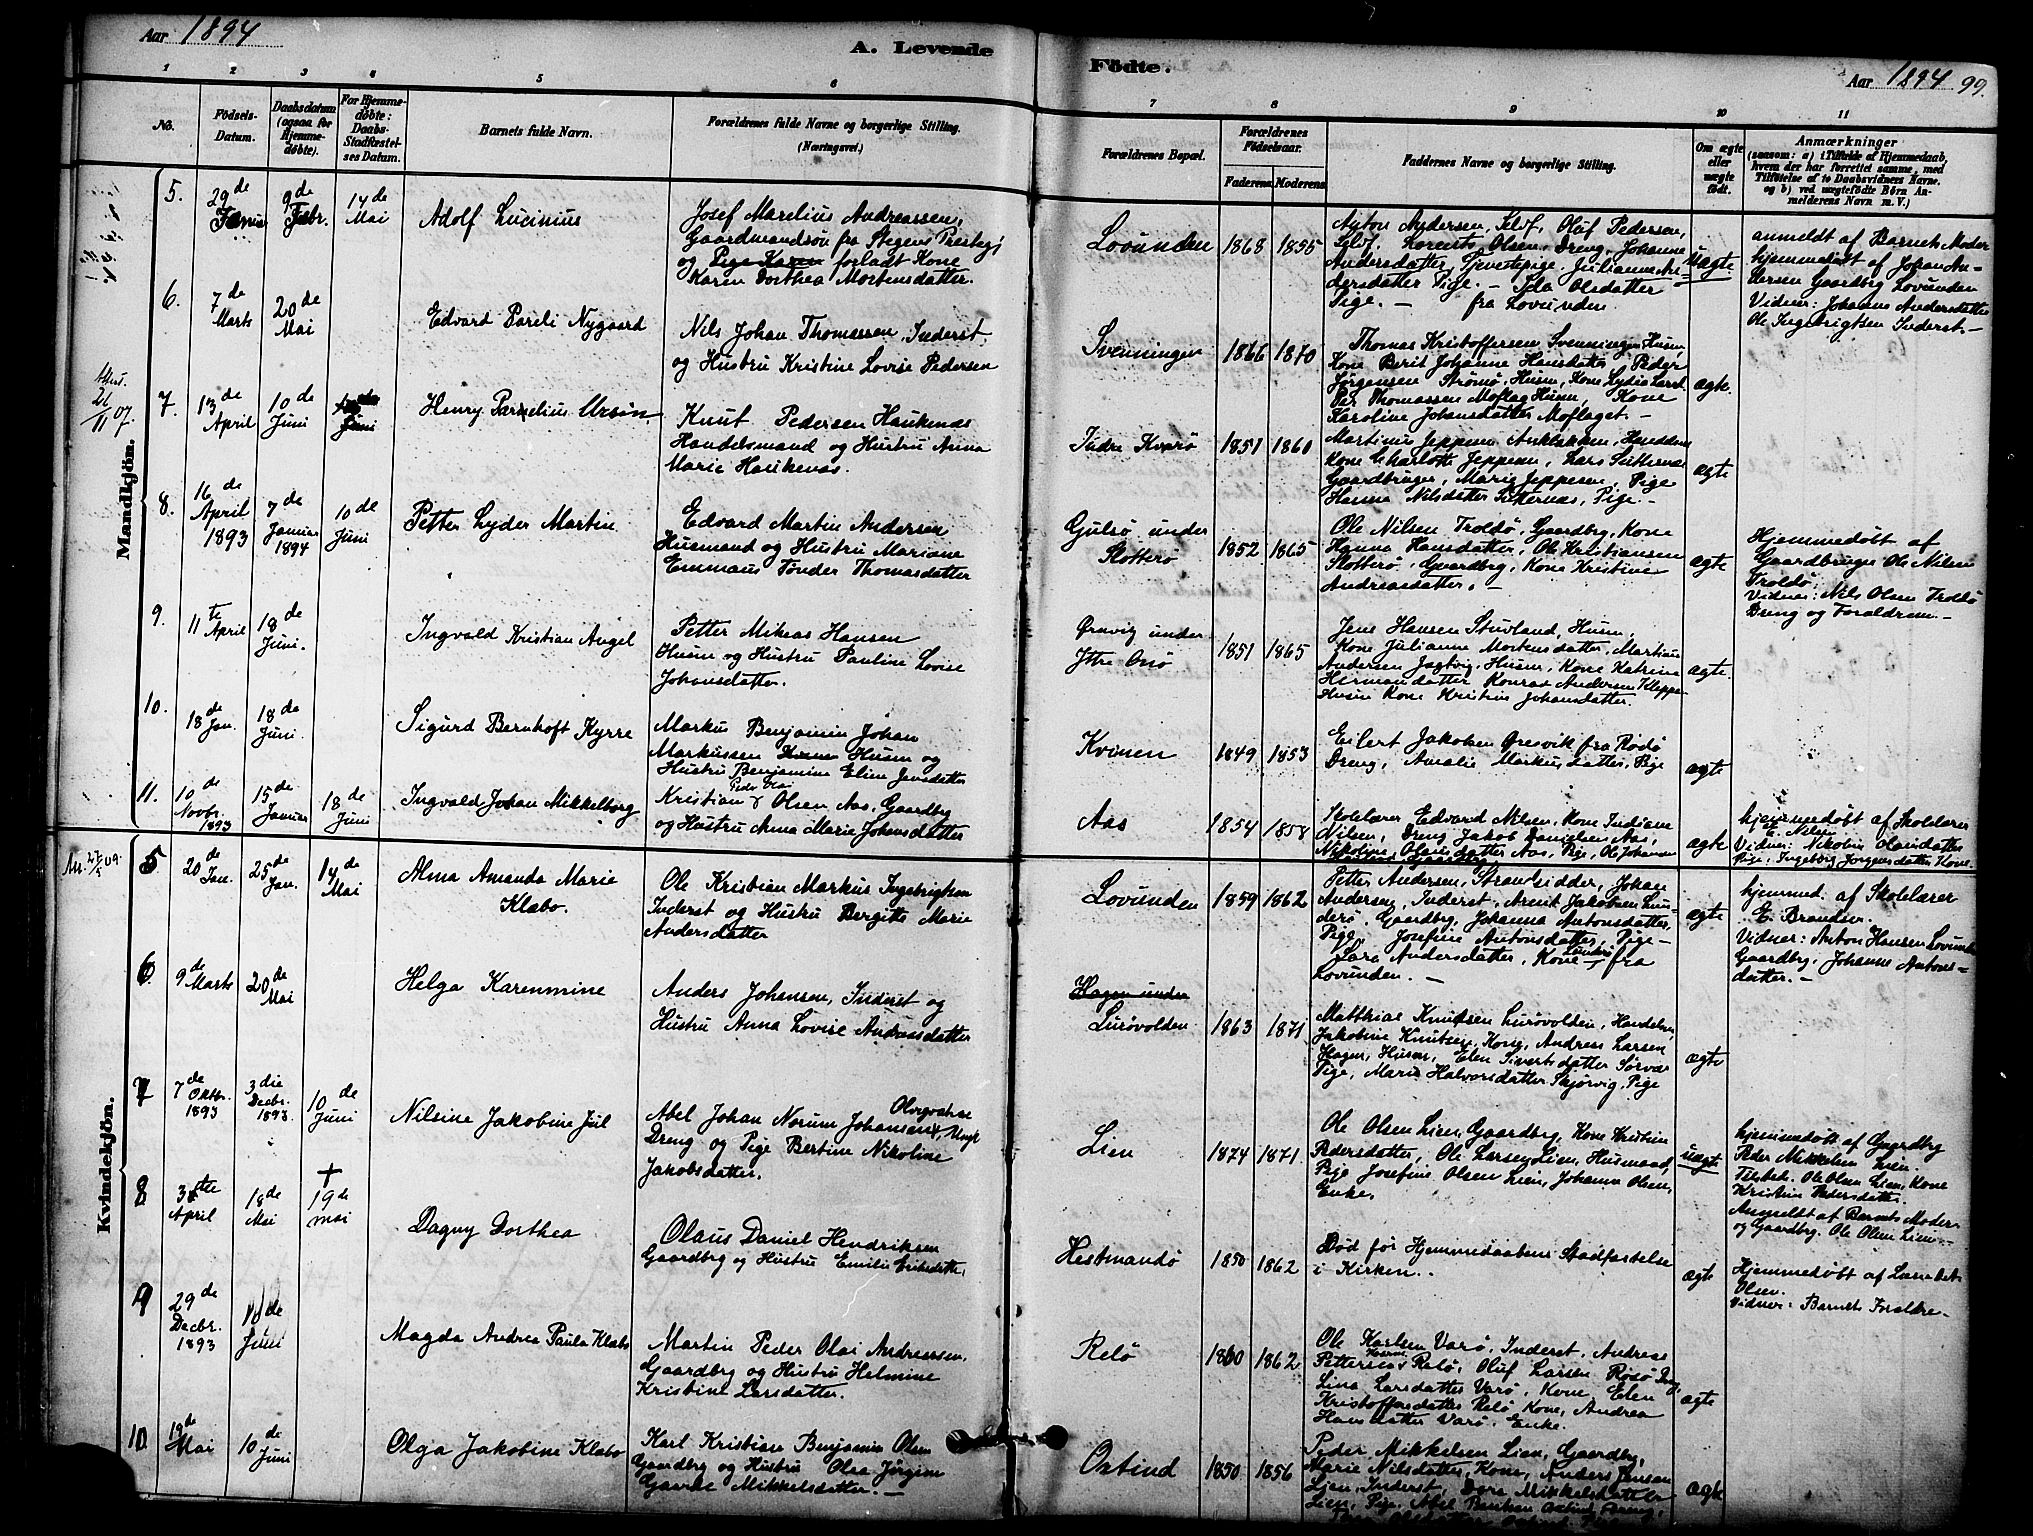 Aar 1894
A. Levende
Födte.
Aar 1894 99.
1 2 3 4 5 6
7 8 9 10 11
No.
Födsels-
Datum.
Daabsdatum
(ogsaa for
Hjemme-
døbte).
For Hjemme-
døbte:
Daabs-
Stadfæstel-
ses Datum.
Barnets fulde Navn.
Forældrenes fulde Navne og borgerlige Stilling.
(Næringsvei.)
Forældrenes Bopæl.
Forældrenes
Fødselsaar.
Faderens. Moderens.
Faddernes Navne og borgerlige Stilling.
Om ægte
eller
uægte
født.
Anmærkninger
(saasom: a) i Tilfælde af Hjemmedaab,
hvem der har forrettet samme, med
Tilføielse af to Daabsvidners Navne.
og b) ved uægtefødte Børn An-
melderens Navn m. V.)
Mandkjön.
5. 29de 9de Febr. 14de Mai
Adolf Lucinius
Josef Marelius Andreassen,
Gaardmandsøn fra Stegens Prestegj
og Pige Karen forladt Kone
Karen Dorthea Mortensdatter.
Lovunden 1868 1855
Anton Andersen, Selvf, Oluf Pedersen,
Selvf, Lorents Olsen, Dreng, Johanne
Andersdatter, Tjenestepige, Julianne An-
dersdatter Pige. — Ida Olsdatter
Pige. — fra Lovunden.
uægte
anmeldt af Barnets Moder
hjemmedøbt af Johan An-
dersen Gaardbrg Lovunden
Vidner: Johanna Andersdatter
Ole Ingebrigtsen Inderst. —
6. 7de Marts 20de Mai
Edvard Pareli Nygaard
Nils Johan Thomassen, Inderst
og Hustru Kristine Lovise Pedersen
Svenningen 1866 1870
Thomas Kristoffersen Svenningen Husm,
Kone Berit Johanne Hansdatter, Peder
Jørgensen Strømø, Husm, Kone Lydia Larsd.
Per Thomassen Moflag Husm, Kone
Karoline Johansdatter Moflaget. —
ægte.
21/11 07.
7. 13de April 10de Juni
Henry Parelius Ursin
Knut Pedersen Haukenæs
Handelsmand og Hustru Anna
Marie Haukenæs.
Indre Kvarø 1851 1860
Kone Charlotte Jeppesen, Lars Sætternæs
Gaardbruger, Marie Jeppesen, Pige
Hanna Nilsdatter Sætternæs, Pige. —
ægte
8. 16de April 1893 7de Januar 1894 10de Juni
Petter Lyder Martin
Edvard Martin Andersen
Husmand og Hustru Mariane
Emmaus Tønder Thomasdatter
Gulsø under
Slotterø
1852. 1865
Ole Nilsen Troldø, Gaardbrg, Kone
Hanna Hansdatter, Ole Kristiansen
Slotterø, Gaardbrg, Kone Kristine
Andreasdatter. —
ægte
Hjemmedøbt af
Gaardbruger Ole Nilsen
Troldø.
Vidner: Nils Olsen Troldø
Dreng og Forældrene. —
9. 11te April 18de Juni.
Ingvald Kristian Angel
Petter Mikæs Hansen
Husm og Hustru Pauline Lovise
Johansdatter.
Ørnvig under
Ytre Onø
1851 1865
Jens Hansen Stuvland, Husm,
Kone Julianne Mortensdatter, Martin
Andersen Jagtvig, Husm, Kone Katrine
Hermansdatter Konrad Andersen Kleppe
Husm Kone Kristine Johansdatter.
ægte.
10. 18de Jan. 18de Juni.
Sigurd Bernhoft Kyrre
Markus Benjamin Johan
Markussen Husm og
Hustru Benjamine Elen Jensdatter
Kvinen 1849 1853
Eilert Jakobsen Øresvik fra Rødø
Dreng, Amalie Markusdatter, Pige
ægte
11. 10de Novbr. 1893 15de Januar 18de Juni
Ingvald Johan Mikkelborg
Kristian Peder Olai Olsen Aas, Gaardbg
og Hustru Anna Marie Johansdatter
Aas 1854 1858
Skolelærer Edvard Nilsen, Kone Indiane
Nilsen, Dreng Jakob Danielsen Aas,
Nikoline Olausdatter Aas, Pige, Ole Johansen
ægte
hjemmedøbt af Skolelærer
E. Nilsen
Vidner: Nikoline Olausdatter
Pige, Ingeborg Jørgensdatter Kone.
Kvindekjön.
5 20de Jan. 25de Jan. 14de Mai
Alma Amanda Marie
Klæbo.
Ole Kristian Markus Ingebrigtsen
Inderst og Hustru Bergitte Marie
Andersdatter
Lovunden 1859 1862
Petter Andersen, Strandsidder, Johan
Andersen, Inderst, Arent Jakobsen Lun-
derø, Gaardbrg, Johanna Antonsdatter,
Pige, Josefine Antonsdatter, Pige —
Sara Andersdatter, Kone, fra
Lovunden. —
ægte
hjemmed. af Skolelærer
E. Brandsen.
Vidner: Anton Hansen Lovunden
Gaardbrg, Johanne Antons-
datter. —
6 9de Marts 20de Mai
Helga Karenmine
Anders Johansen, Inderst og
Hustru Anna Lovise Andreasdatter
Hagen under
Lurøvolden
1863 1871
Matthias Knutsen Lurøvolden, Handelsm,
Jakobine Knutsen, Kone, Andreas Larsen
Hagen, Husm, Elen Sivertsdatter Sørvær
Pige, Marie Halvorsdatter Skjørvig, Pige
ægte
7 7de Oktbr. 1893 3die Decbr. 1893. 10de Juni
Nilsine Jakobine Juil
Abel Johan Norum Johansen
Dreng og Pige Bertine Nikoline
Jakobsdatter.
Lien 1874 1871.
Ole Olsen Lien, Gaardbrg, Kone Kristine
Pedersdatter, Ole Larsen Lien, Husmand,
Pige Josefine Olsen Lien, Johanna Olsen,
Enke.
uægte
hjemmedøbt af Gaardbrg
Peder Mikkelsen Lien.
Ole Olsen Lien, Kone
Kristine Pedersdatter.
Anmeldt af Barnets Moder
og Gaardbrg. Ole Olsen Lien. —
8 April 18de Mai + 19de mai
Dagny Dorthea
Olaus Daniel Hendriksen
Gaardbrg og Hustru Emilie Eriksdatter,
Hestmandø 1850 1862
Død før Hjemmedaabens Stadfæstelse
i Kirken.
ægte
Hjemmedøbt af
Olsen.
Vidner: Barnets Forældre —
9 29de Decbr. 1893
Magda Andrea Paula Klæbo
Martin Peder Olai Andreassen,
Gaardbrg og Hustru Helmine
Kristine Larsdatter.
Relø 1860 1862
Ole Karlsen Varø, Inderst, Andreas
Pettersen Relø, Oluf Larsen Rosø Drg,
Lina Larsdatter Varø, Kone, Elen
Kristoffersdatter Relø Kone, Andrea
Hansdatter Varø. Enke.
ægte
10 19de Mai 10de Juni
Olga Jakobine Klæbo
Karl Kristian Benjamin Olsen
Gaardbrg og Hustru Olea Jørgine
Gaarde Mikkelsdatter. —
Oxtind 1850 1856
Peder Mikkelsen Lien, Gaardbrg,
Marie Nilsdatter, Kone, Anders Jensen
Lien, Inderst, Dora Mikkelsdatter
Lien, Pige, Abel Bentsen Oxtind Dreng,
ægte